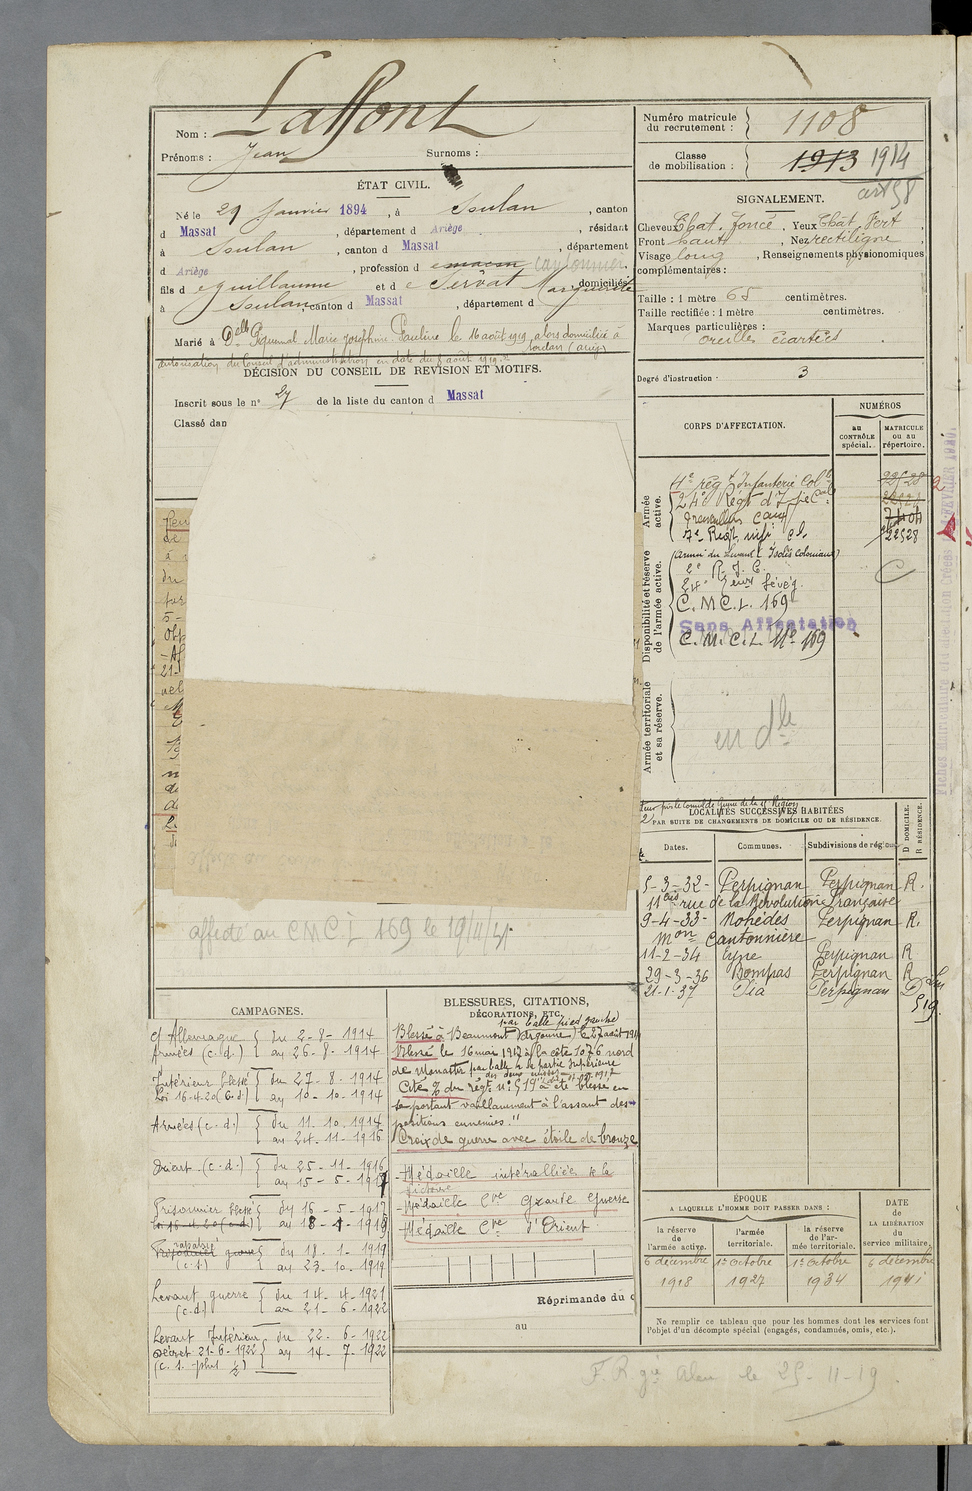 Nom : Laffont
Prénoms : Jean Surnoms :
ÉTAT CIVIL.
Né le 29 Janvier 1894, à Soulan, canton
d Massat, département d Ariège, résidant
à Soulan, canton d Massat, département
d Ariège, profession d e maçon cantonnier
fils d e Guillaume et d e Servat Marguerite domiciliés
à Soulan, canton d Massat, département d
Marié à Delle Piquemal Marie Josephine Pauline le 16 août 1919, alors domiciliée à
Soulan (Ariège)
autorisation du Conseil d'administration en date du 8 août 1919.
DÉCISION DU CONSEIL DE REVISION ET MOTIFS.
Inscrit sous le n° 27 de la liste du canton d Massat
Classé dan
affecté au CMCL 169 le 19/4/41
CAMPAGNES.
c/ Allemagne du 2-8-1914
Armées (c.d.) au 26-8-1914
Intérieur blessé du 27-8-1914
Loi 16-4-20 (c.d.) au 10-10-1914
Armées (c.d.) du 11-10-1914
au 24-11-1916
Orient (c.d.) du 25-11-1916
au 15-5-1917
Prisonnier blessé du 16-5-1917
loi 16-4-20 (c.d.) au 18-1-1919
rapatrié
guerre du 18-1-1919
(c.s.) au 23-10-1919
Levant guerre du 14-4-1921
(c.d.) au 21-6-1922
Levant Intérieur du 22-6-1922
Décret 21-6-1922 au 14-7-1922
(c.s. plus ½)
BLESSURES, CITATIONS,
DÉCORATIONS, ETC.
par balle pied gauche
Blessé à Beaumont (Argonne) le 27 août 1914
Blessé le 16 mai 1917 à la côte 1076 nord
de Monastir par balle à la partie supérieure
des deux cuisses
Cité O/ du régt n° 519 "a été blessé en
se portant vaillamment à l'assaut des
positions ennemies."
Croix de guerre avec étoile de bronze
Médaille interalliée de la
Victoire
Médaille Cve Grande Guerre
Médaille Cve d'Orient
Réprimande du c
au
Numéro matricule
du recrutement : 1108
Classe
de mobilisation : 1913 1914
art 58
SIGNALEMENT.
Cheveux Chat. foncé, Yeux Chat. Vert
Front haut, Nez rectiligne,
Visage long, Renseignements physionomiques
complémentaires :
Taille : 1 mètre 65 centimètres.
Taille rectifiée : 1 mètre centimètres.
Marques particulières :
oreilles écartées
Degré d'instruction : 3
CORPS D'AFFECTATION.
NUMÉROS
au
CONTRÔLE
spécial.
MATRICULE
ou au
répertoire.
Armée
active.
4e régt Infanterie Colle
24e Régt d'Infie Cale
7e Régt infie Cl. 22528
(armée du Levant Isolés Coloniaux)
Disponibilité et réserve
de l'armée active.
2e R. I. C.
24e
C.M.C.L. 169
Sans Affectation
C.M.C.L. N° 169
Armée territoriale
et sa réserve.
en dle
LOCALITÉS SUCCESSIVES HABITÉES
PAR SUITE DE CHANGEMENTS DE DOMICILE OU DE RÉSIDENCE.
Dates. Communes. Subdivisions de région
D DOMICILE.
R RÉSIDENCE.
5-3-32- Perpignan Perpignan R.
11 bis rue de la Révolution Française
9-4-33- Nohèdes Perpignan R.
Mon Cantonnière
11-2-34 Eyne Perpignan R
29-3-36 Bompas Perpignan R
21-1-37 Pia Perpignan D
519
ÉPOQUE
A LAQUELLE L'HOMME DOIT PASSER DANS :
la réserve
de
l'armée active.
l'armée
territoriale.
la réserve
de l'ar-
mée territoriale.
DATE
de
LA LIBÉRATION
du
service militaire.
6 décembre 1er Octobre 1er Octobre 6 décembre
1918 1927 1934 1941
Ne remplir ce tableau que pour les hommes dont les services font
l'objet d'un décompte spécial (engagés, condamnés, omis, etc.).
le 25-11-19.